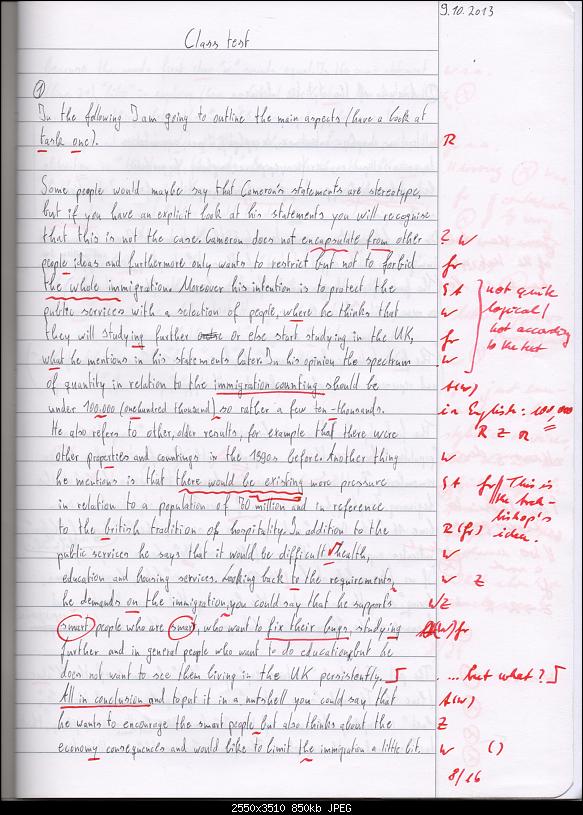 9.10.2013
Class test
①
In the following I am going to outline the main aspects (have a look at
task one).
R
Some people would maybe say that Cameron's statements are stereotype,
but if you have an explicit look at his statements you will recognise
that this is not the case. Cameron does not encapsulate from other
? W
people ideas and furthermore only wants to restrict but not to forbid
fr
the whole immigration. Moreover his intention is to protect the
SA
not quite
public services with a selection of people, where he thinks that
W
logical /
they will studying further or else start studying in the UK,
fr
not according
what he mentions in his statements later. In his opinion the spectrum
W
to the text
of quantity in relation to the immigration counting should be
A(W)
under 100.000 (onehundred thousand), so rather a few ten-thousands.
in English: 100,000
He also refers to other, older results, for example that there were
R Z R
other properties and countings in the 1990s before. Another thing
W
he mentions is that there would be existing more pressure
SA fr This is
in relation to a population of 70 million and in reference
bishop's
to the british tradition of hospitality. In addition to the
R (fr) idea.
public services he says that it would be difficult health,
W
education and housing services. Looking back to the requirements,
W Z
he demands on the immigration, you could say that he supports
W Z
smart people who are smart, who want to fix their bugs, studying
(W) fr
further and in general people who want to do education, but he
does not want to see them living in the UK persistently.
... but what?
All in conclusion and to put it in a nutshell you could say that
A(W)
he wants to encourage the smart people but also thinks about the
Z
economy consequences and would like to limit the immigration a little bit.
W ()
8/16
2550x3510 850kb JPEG